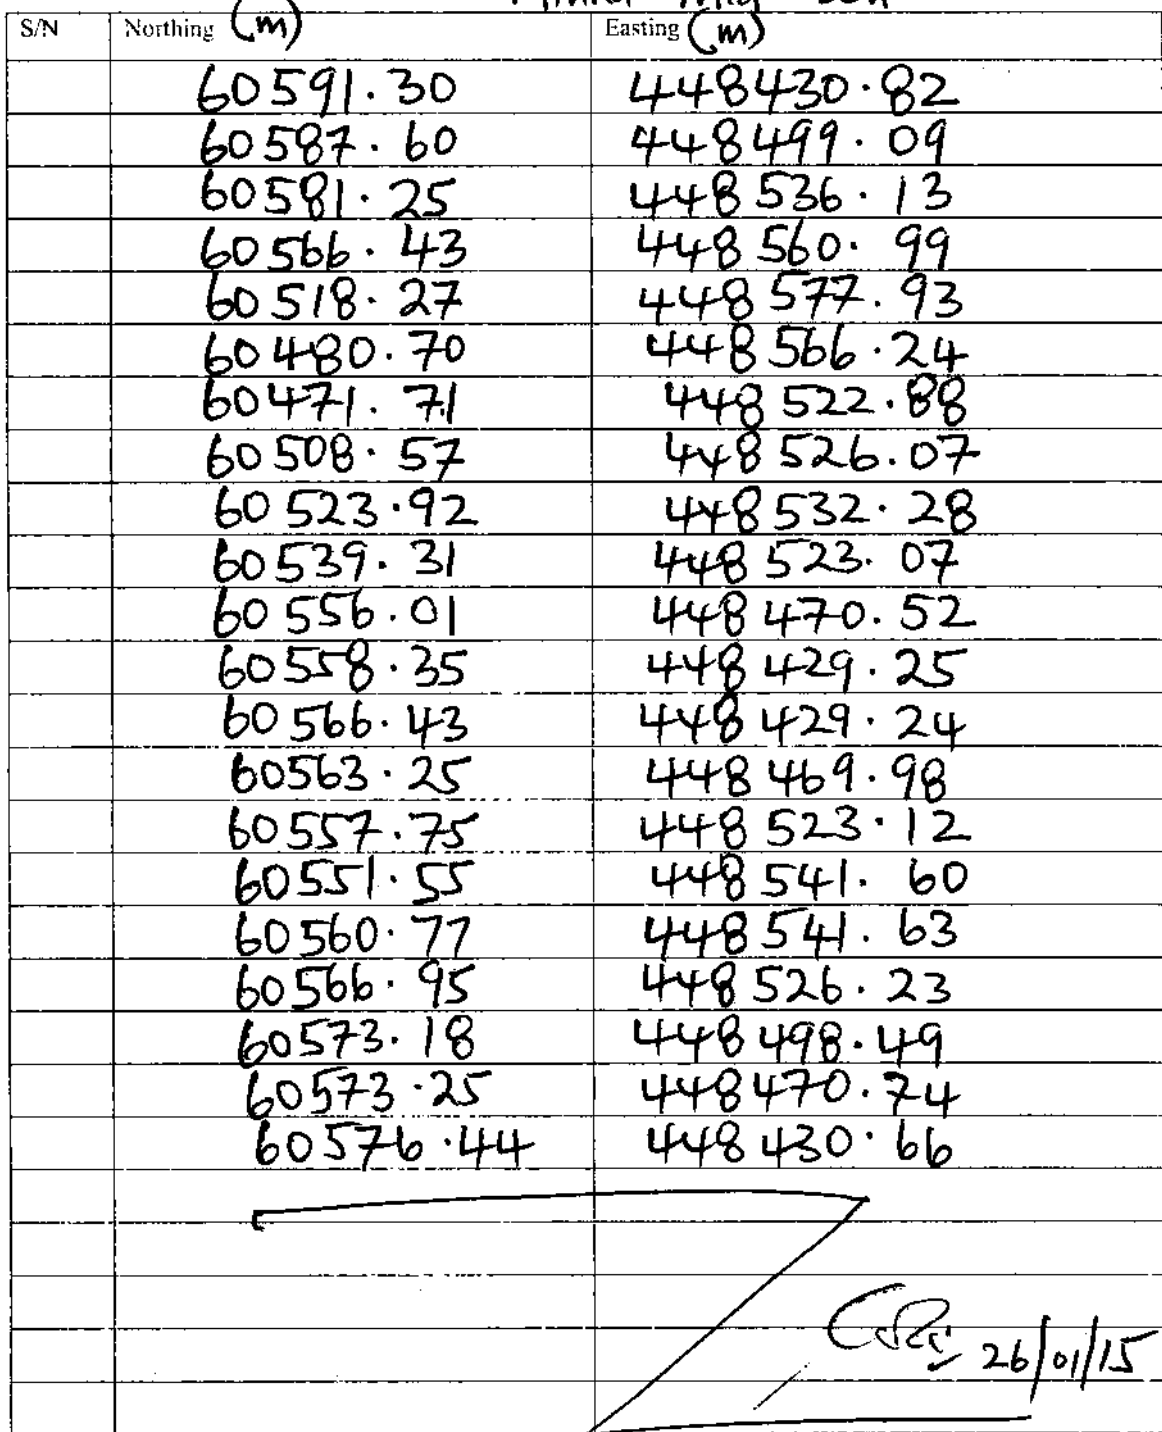 S/N Northing (m) Easting (m)
60591.30 448430.82
60587.60 448499.09
60581.25 448536.13
60566.43 448560.99
60518.27 448577.93
60480.70 448566.24
60471.71 448522.88
60508.57 448526.07
60523.92 448532.28
60539.31 448523.07
60556.01 448470.52
60558.35 448429.25
60566.43 448429.24
60563.25 448469.98
60557.75 448523.12
60551.55 448541.60
60560.77 448541.63
60566.95 448526.23
60573.18 448498.49
60573.25 448470.74
60576.44 448430.66
26/01/15